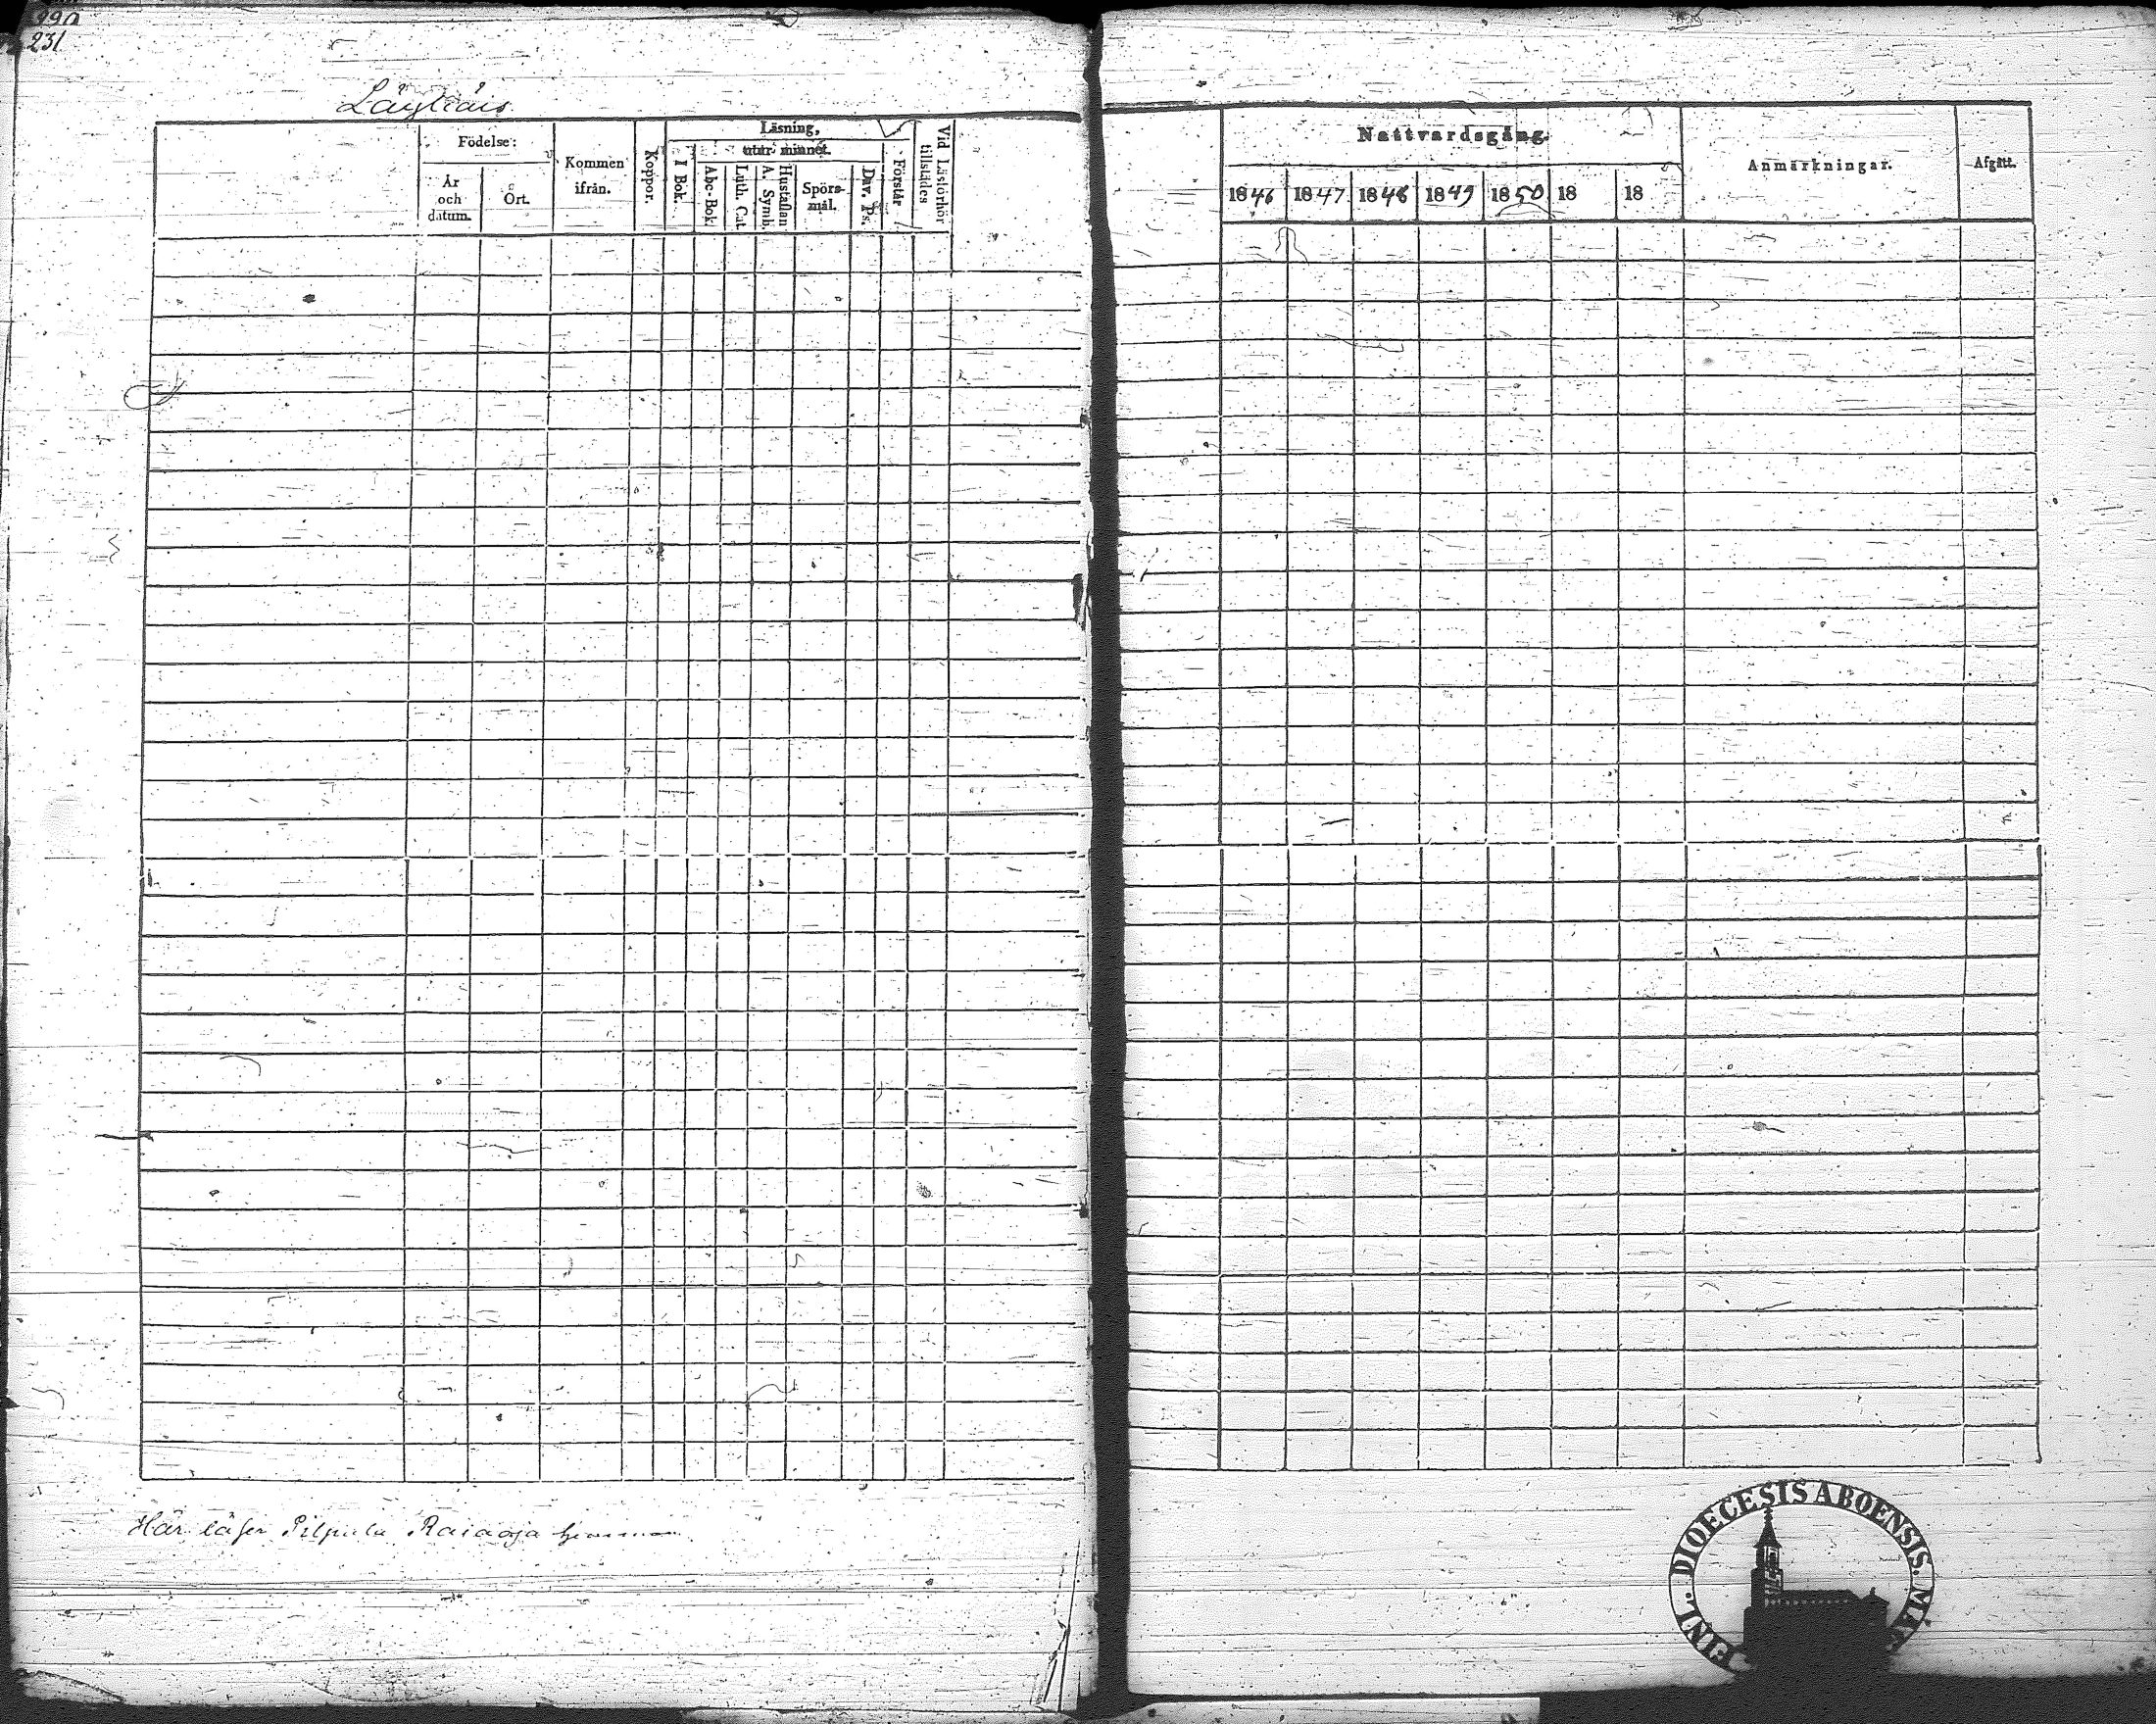 231
Födelse:
År och datum.
Ort.
Kommen ifrån.
Koppor.
Läsning,
I Bok.
utur minnet.
Abc-Bok
Luth. Cat
Hustaflan A. Symb.
Spörsmål.
Dav. Ps.
Förstår
Vid Läsförhör tillstädes
Nattvardsgång.
1846 1847 1848 1849 1850 18 18
Anmärkningar.
Afgått.
Här Pilpula
FINL. DIOECESIS ABOENSIS. MA